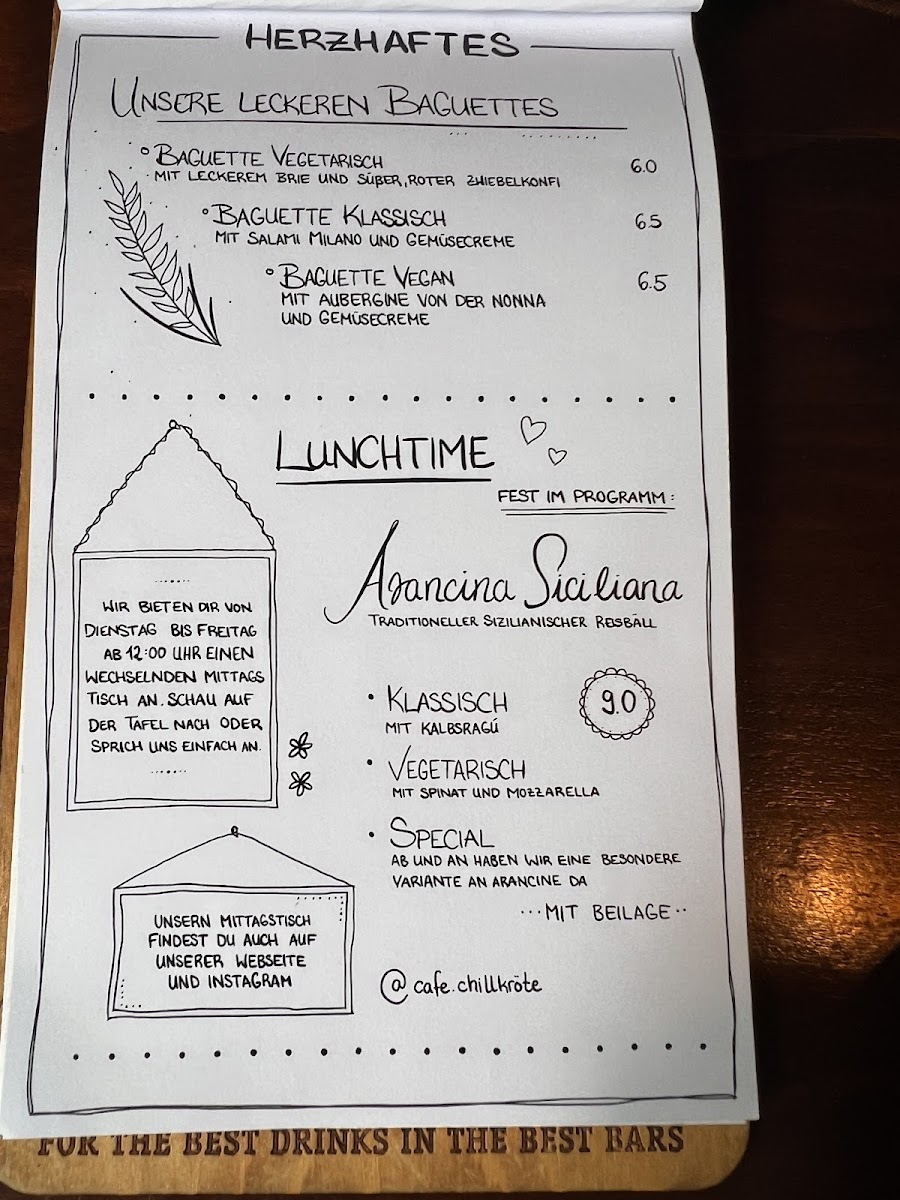 HERZHAFTES
UNSERE LECKEREN BAGUETTES
BAGUETTE VEGETARISCH 6.0
MIT LECKEREM BRIE UND SÜßER, ROTER ZWIEBELKONFI
BAGUETTE KLASSISCH 6.5
MIT SALAMI MILANO UND GEMÜSECREME
BAGUETTE VEGAN 6.5
MIT AUBERGINE VON DER NONNA
UND GEMÜSECREME
LUNCHTIME
FEST IM PROGRAMM:
Arancina Siciliana
TRADITIONELLER SIZILIANISCHER REISBÄLL
WIR BIETEN DIR VON
DIENSTAG BIS FREITAG
AB 12:00 UHR EINEN
WECHSELNDEN MITTAGS
TISCH AN. SCHAU AUF
DER TAFEL NACH ODER
SPRICH UNS EINFACH AN.
• KLASSISCH 9.0
MIT KALBSRAGÚ
• VEGETARISCH
MIT SPINAT UND MOZZARELLA
• SPECIAL
AB UND AN HABEN WIR EINE BESONDERE
VARIANTE AN ARANCINE DA
...MIT BEILAGE..
UNSERN MITTAGSTISCH
FINDEST DU AUCH AUF
UNSERER WEBSEITE
UND INSTAGRAM
@cafe.chillkröte
FOR THE BEST DRINKS IN THE BEST BARS